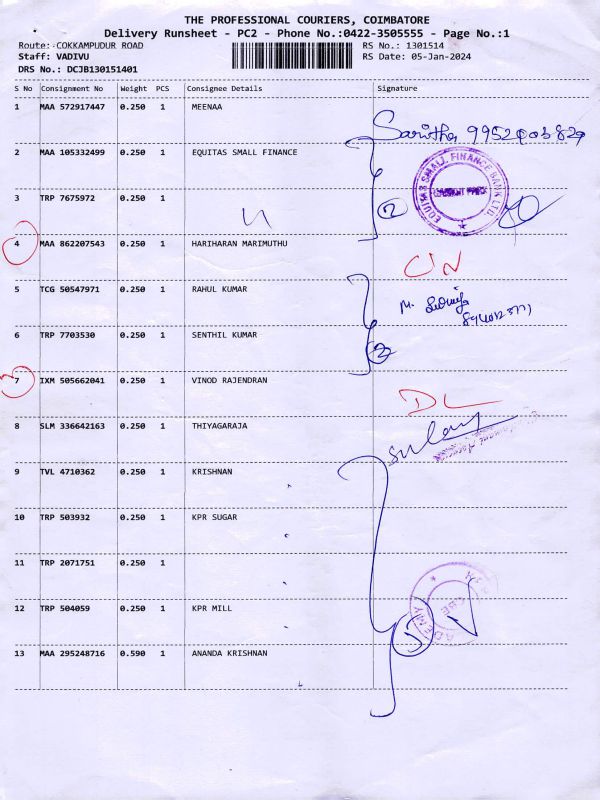 THE PROFESSIONAL COURIERS, COIMBATORE
Delivery Runsheet - PC2 - Phone No.:0422-3505555 - Page No.:1
Route: COKKAMPUDUR ROAD RS No.: 1301514
Staff: VADIVU RS Date: 05-Jan-2024
DRS No.: DCJB130151401
S No Consignment No Weight PCS Consignee Details Signature
1 MAA 572917447 0.250 1 MEENAA
2 MAA 105332499 0.250 1 EQUITAS SMALL FINANCE
EQUITAS SMALL FINANCE BANK LTD.
3 TRP 7675972 0.250 1
2
4 MAA 862207543 0.250 1 HARIHARAN MARIMUTHU
5 TCG 50547971 0.250 1 RAHUL KUMAR
6 TRP 7703530 0.250 1 SENTHIL KUMAR
7 IXM 505662041 0.250 1 VINOD RAJENDRAN
DL
8 SLM 336642163 0.250 1 THIYAGARAJA
9 TVL 4710362 0.250 1 KRISHNAN
10 TRP 503932 0.250 1 KPR SUGAR
11 TRP 2071751 0.250 1
12 TRP 504059 0.250 1 KPR MILL
13 MAA 295248716 0.590 1 ANANDA KRISHNAN